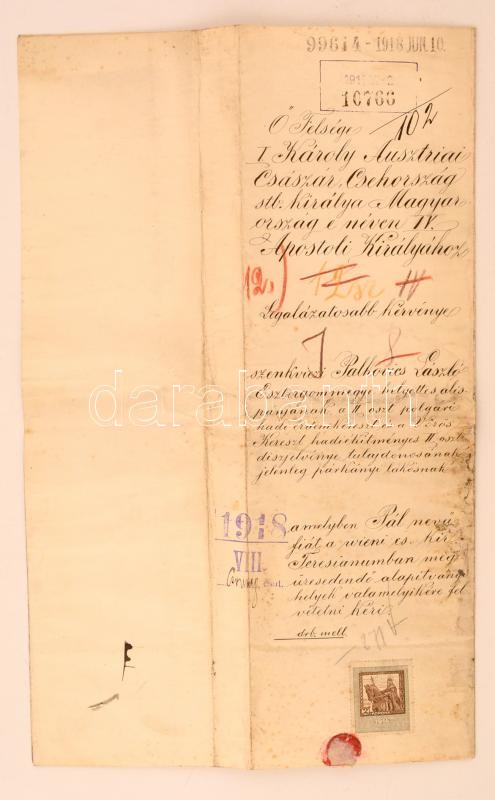 99614 - 1918 JUN. 10.
10766
102
Ő Felsége
I Károly Ausztriai
Császár, Csehország
stb. királya Magyar
ország e néven IV.
Apostoli Királyához
12.)
IV
Legalázatosabb kérvénye
szenkviczi Palkovics László
Esztergommegye helyettes alis
pánjának a II oszt polgári
hadi érdemkereszt és a Vörös
Kereszt hadiékítményes II oszt
díszjelvénye tulajdonosának
jelenleg párkányi lakósnak
1918
VIII.
amelyben Pál nevű
fiát a wieni cs. kir
Teresianumban meg
üresedendő alapítványi
helyek valamelyikére fel
vétetni kéri
drb. mell.
darabanth